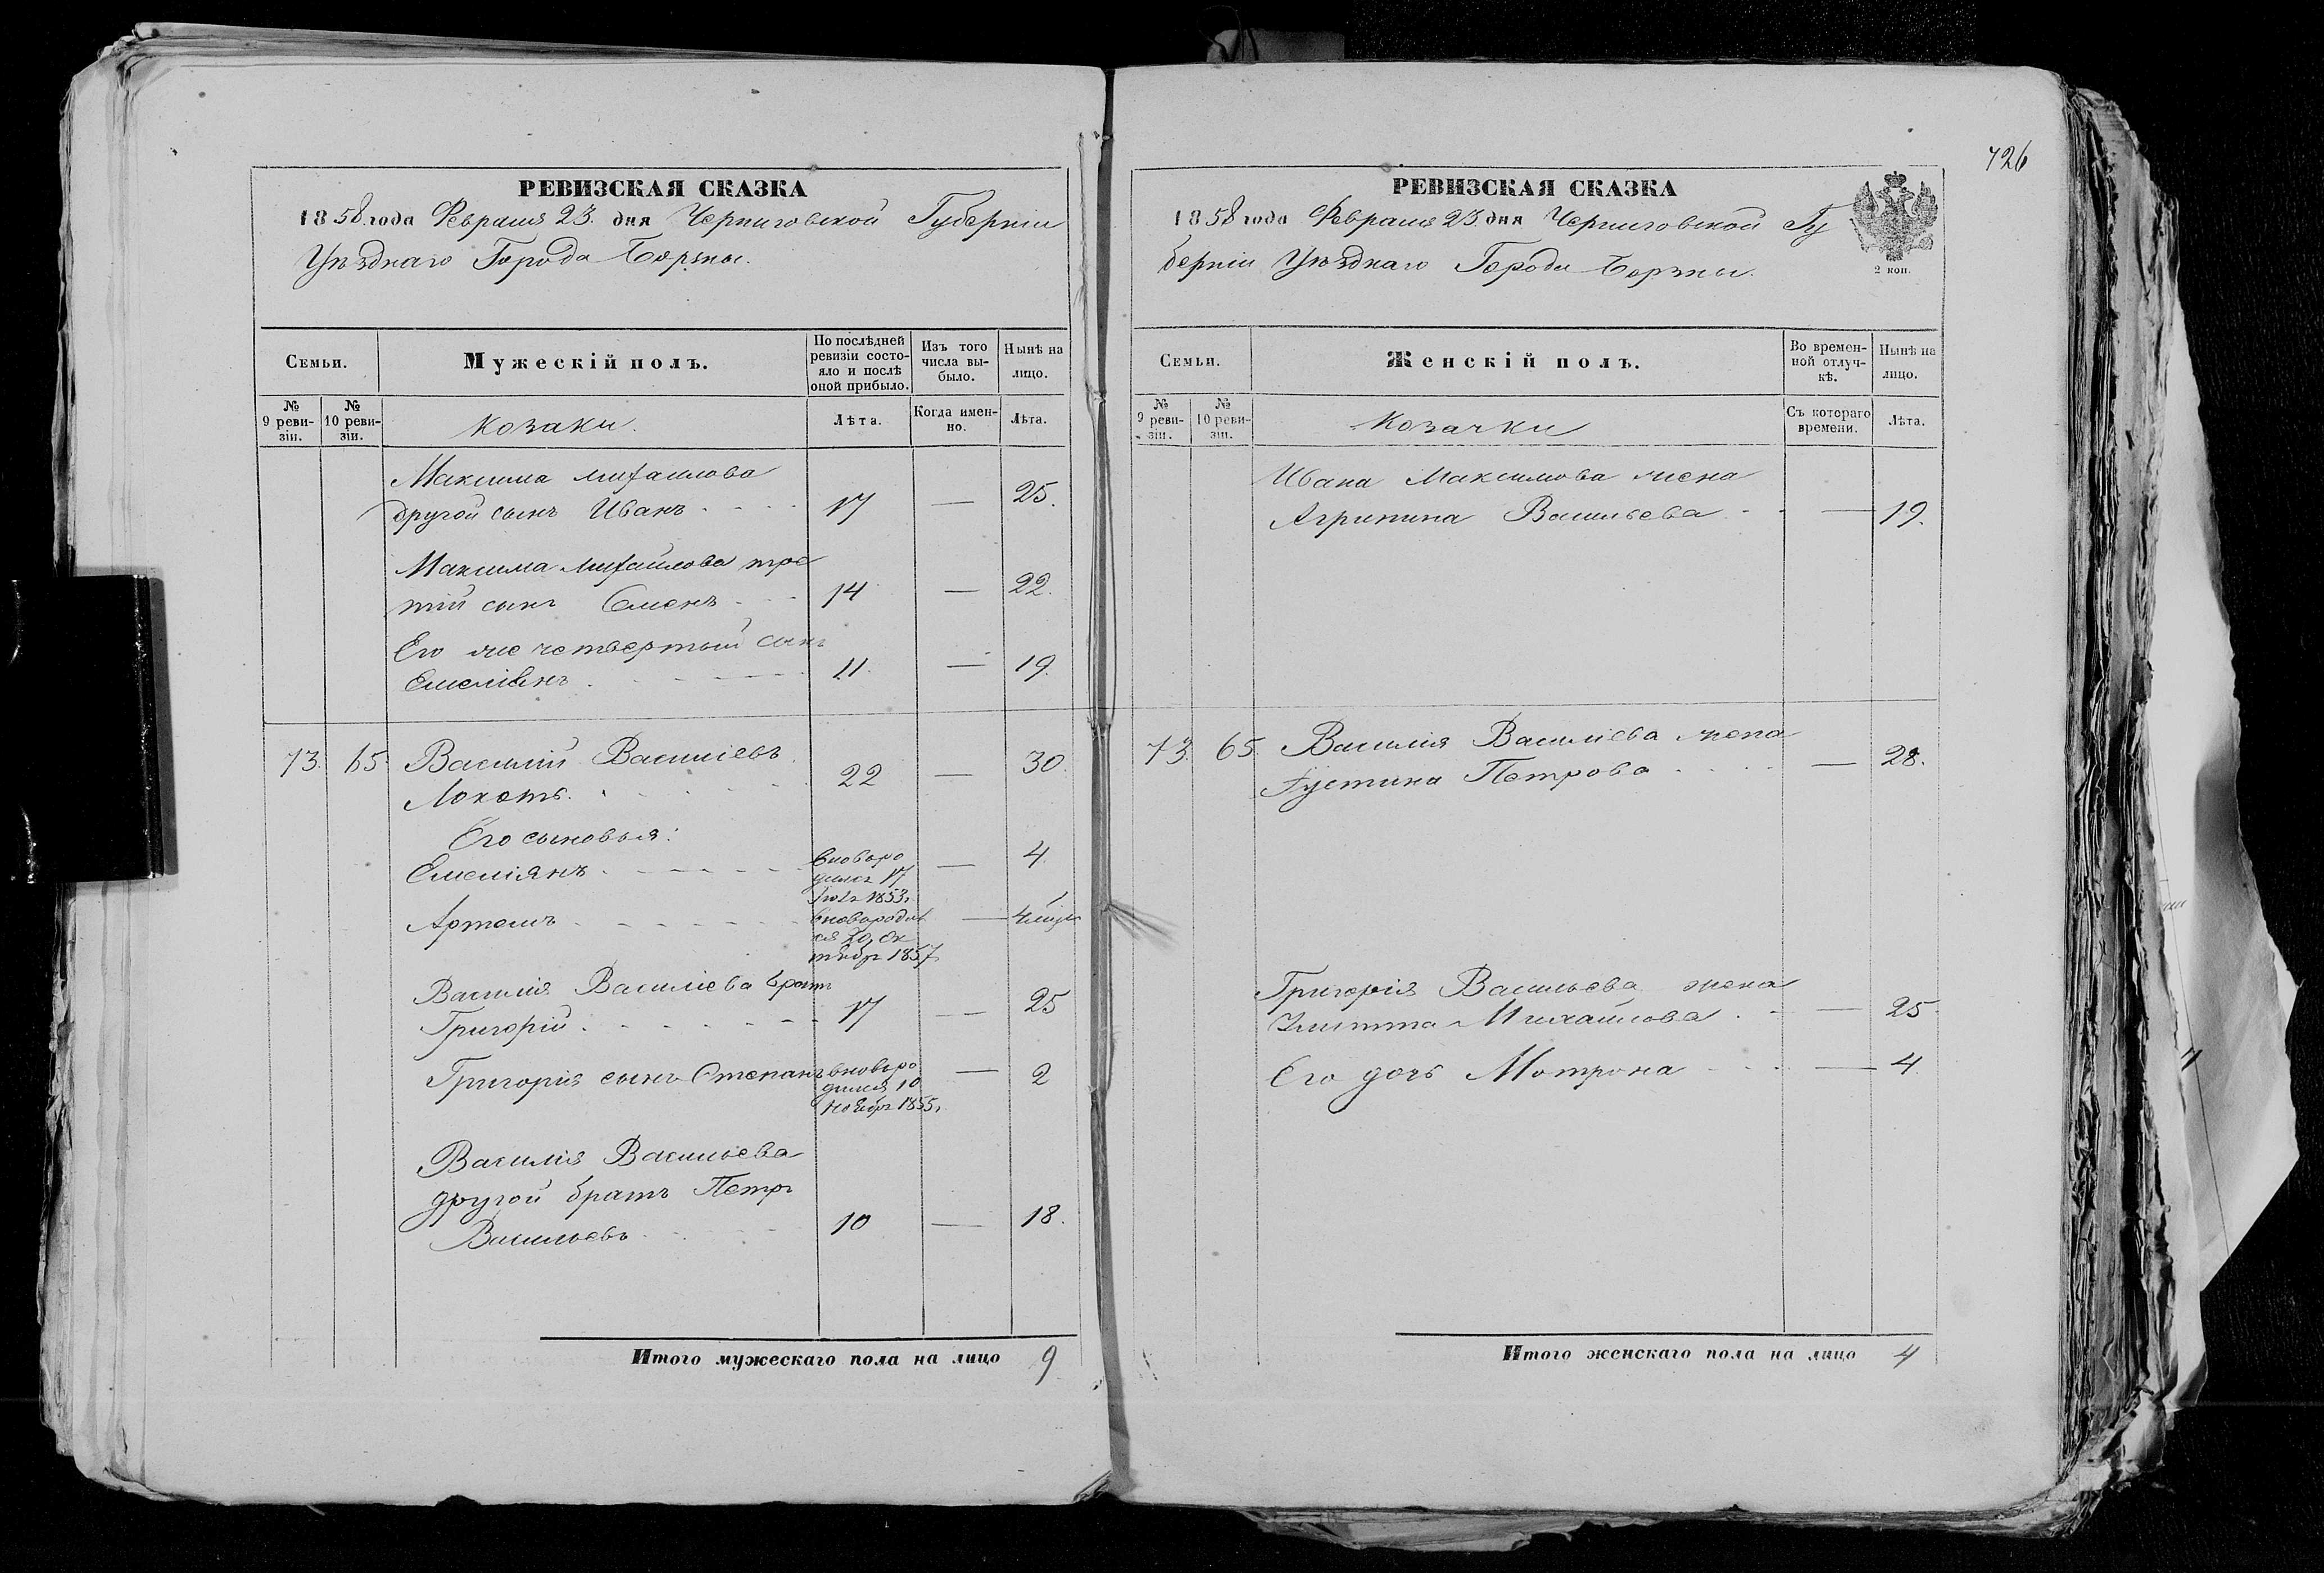 РЕВИЗСКАЯ СКАЗКА
1858 года Февраля 23. дня Черниговской Губерніи
Уѣзднаго Города Борзны.
Семьи.
Мужескій полъ.
По послѣдней ревизіи состояло и послѣ оной прибыло.
Изъ того числа выбыло.
Нынѣ на лицо.
№ 9 ревизіи.
№ 10 ревизіи.
Козаки.
Лѣта.
Когда именно.
Лѣта.
Максима Михайлова
другой сынъ Иванъ 17 — 25.
Максима Михайлова тре
тій сынъ Семенъ 14 — 22.
Его же четвертый сынъ
Емеліянъ 11. — 19.
73. 65 Василій Васильевъ
Локоть. 22 — 30.
Его сыновья:
Емеліянъ вновь ро
дился 17
1853. — 4
Артемъ вновь родил
ся 20 Ок
тября 1857 — 4 мѣся
Василія Василіева братъ
Григорій 17 — 25
Григорія сынъ Степанъ вновь ро
дился 10
Ноября 1855. — 2
Василія Васильева
другой братъ Петръ
Васильевъ 10 — 18.
Итого мужескаго пола на лицо 9
726
РЕВИЗСКАЯ СКАЗКА
1858 года Февраля 23. дня Черниговской Гу
берніи Уѣзднаго Города Борзны.
2 коп.
Семьи.
Женскій полъ.
Во временной отлучкѣ.
Нынѣ на лицо.
№ 9 ревизіи.
№ 10 ревизіи.
Козачки
Съ котораго времени.
Лѣта.
Ивана Максимова жена
Агрипина Васильева — 19.
73. 65. Василія Василіева жена
Густина Петрова — 28.
Григорія Васильева жена
Улитта Михайлова — 25.
Его дочь Мотрона — 4
Итого женскаго пола на лицо 4